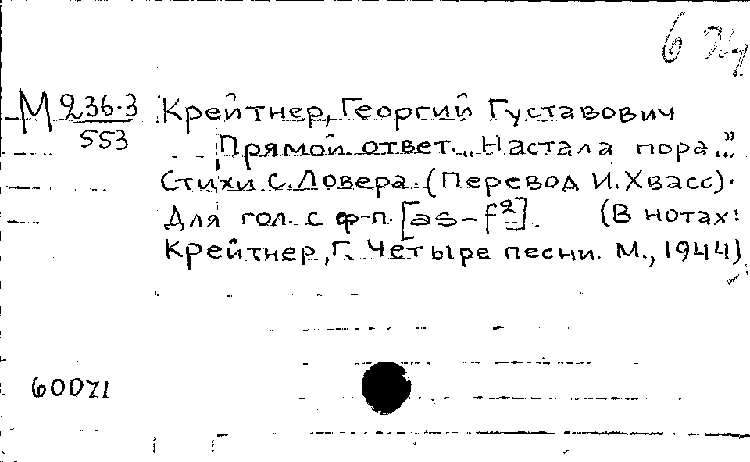 М 236-3 Крейтнер, Георгий Густавович
553 Прямой ответ. „Настала пора..."
Стихи С. Ловера. (Перевод И. Хвасс).
Для гол. с ф-п. [as-f²]. (В нотах:
Крейтнер, Г. Четыре песни. М., 1944)